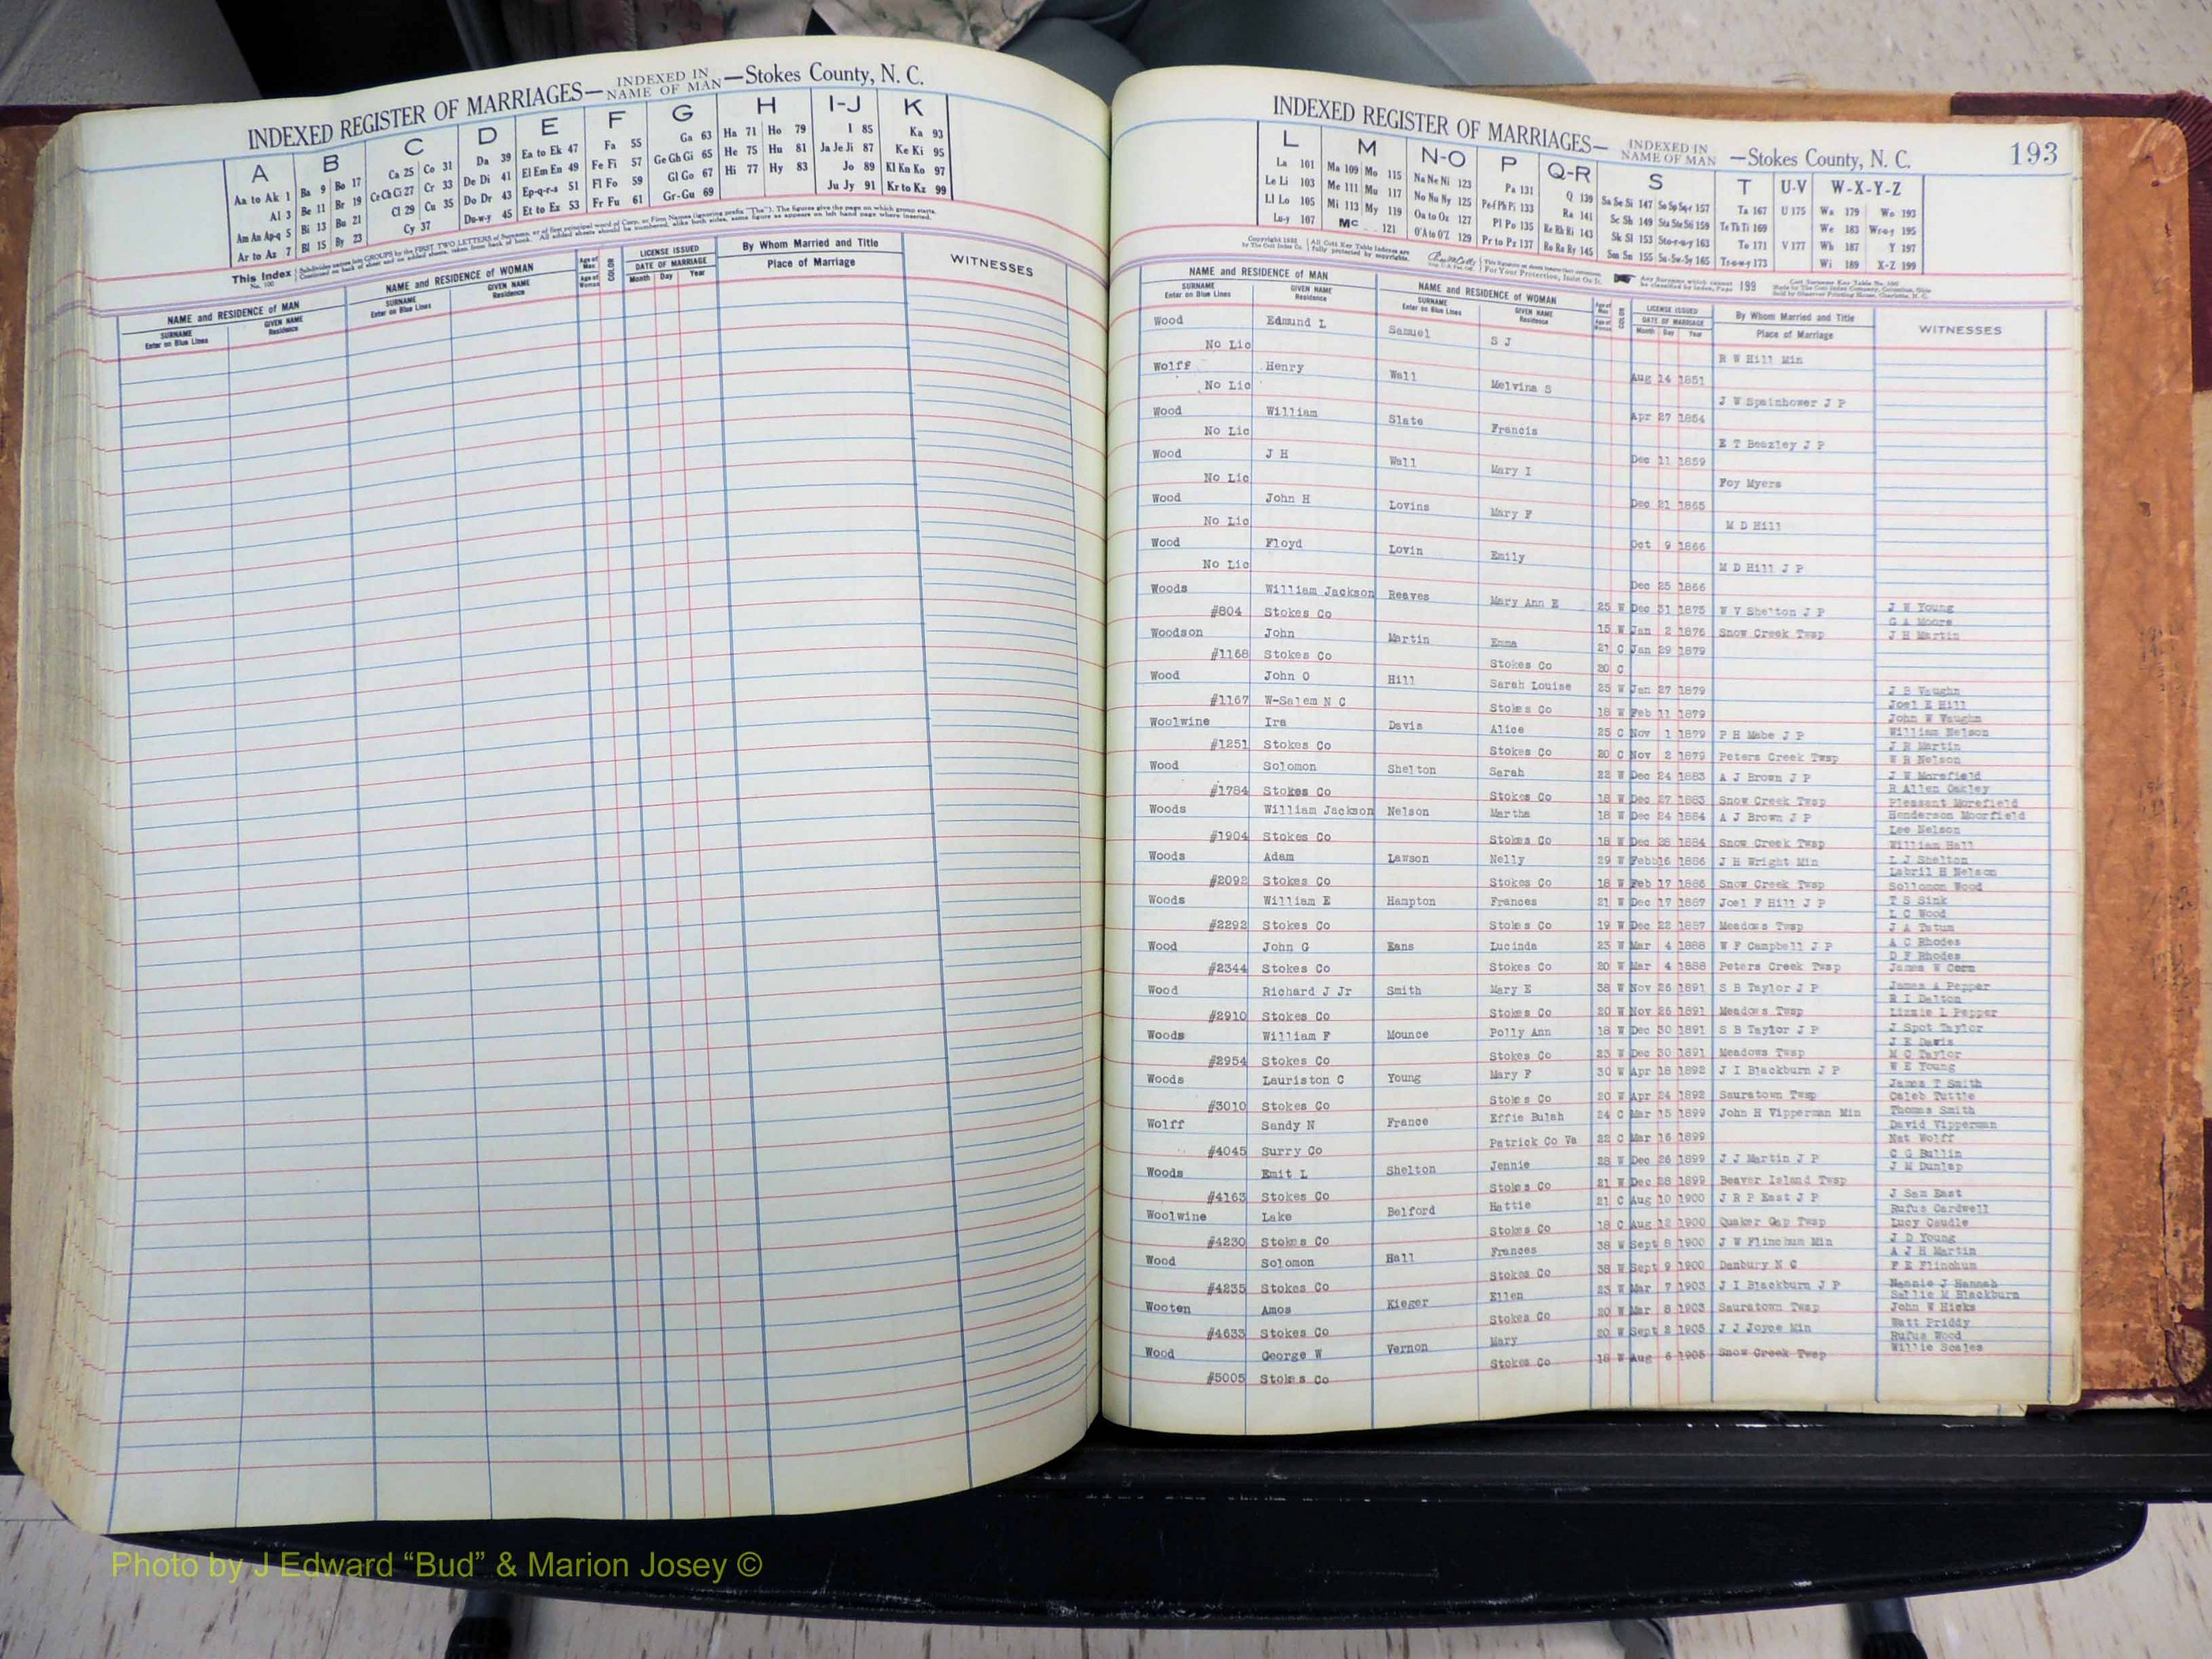 INDEXED REGISTER OF MARRIAGES— INDEXED IN NAME OF MAN —Stokes County, N. C.
A B C D E F G H I-J K
Aa to Ak 1 Ba 9 Bo 17 Ca 25 Co 31 Da 39 Ea to Ek 47 Fa 55 Ga 63 Ha 71 Ho 79 I 85 Ka 93
Al 3 Be 11 Br 19 Ce Ch Ci 27 Cr 33 De Di 41 El Em En 49 Fe Fi 57 Ge Gh Gi 65 He 75 Hu 81 Ja Je Ji 87 Ke Ki 95
Am An Ap-q 5 Bi 13 Bu 21 Cl 29 Cu 35 Do Dr 43 Ep-q-r-s 51 Fl Fo 59 Gl Go 67 Hi 77 Hy 83 Jo 89 Kl Kn Ko 97
Ar to Az 7 Bl 15 By 23 Cy 37 Du-w-y 45 Et to Ez 53 Fr Fu 61 Gr-Gu 69 Ju Jy 91 Kr to Kz 99
This Index No. 100
NAME and RESIDENCE OF MAN NAME and RESIDENCE OF WOMAN Age of Man Age of Woman COLOR LICENSE ISSUED By Whom Married and Title WITNESSES
SURNAME Enter on Blue Lines GIVEN NAME Residence SURNAME Enter on Blue Lines GIVEN NAME Residence DATE OF MARRIAGE Month Day Year Place of Marriage
INDEXED REGISTER OF MARRIAGES— INDEXED IN NAME OF MAN —Stokes County, N. C. 193
L M N-O P Q-R S T U-V W-X-Y-Z
La 101 Ma 109 Mo 115 Na Ne Ni 123 Pa 131 Q 139 Sa Se Si 147 Sa Sp Sq-r 157 Ta 167 U 175 Wa 179 Wo 193
Le Li 103 Me 111 Mu 117 No Nu Ny 125 Pe-f Ph Pi 133 Ra 141 Sc Sh 149 Sta Ste Sti 159 Te Th Ti 169 We 183 Wr-o-y 195
Ll Lo 105 Mi 113 My 119 Oa to Oz 127 Pl Po 135 Re Rh Ri 143 Sk Sl 153 Sto-r-u-y 163 To 171 V 177 Wh 187 Y 197
Lu-y 107 Mc 121 O'A to O'Z 129 Pr to Pz 137 Ro Ru Ry 145 Sm Sn 155 Su-Sw-Sy 165 Tr-u-w-y 173 Wi 189 X-Z 199
Any Surname which cannot be classified by index, Page 199
NAME and RESIDENCE OF MAN NAME and RESIDENCE OF WOMAN Age of Man Age of Woman COLOR LICENSE ISSUED By Whom Married and Title WITNESSES
SURNAME Enter on Blue Lines GIVEN NAME Residence SURNAME Enter on Blue Lines GIVEN NAME Residence DATE OF MARRIAGE Month Day Year Place of Marriage
Wood Edmund L Samuel S J R W Hill Min
No Lic Aug 14 1851
Wolff Henry Wall Melvina S J W Spainhower J P
No Lic Apr 27 1854
Wood William Slate Francis E T Beazley J P
No Lic Dec 11 1859
Wood J H Wall Mary I Foy Myers
No Lic Dec 21 1865
Wood John H Lovins Mary F M D Hill
No Lic Oct 9 1866
Wood Floyd Lovin Emily M D Hill J P
No Lic Dec 25 1866
Woods William Jackson Reaves Mary Ann E 25 W Dec 31 1875 W V Shelton J P J W Young
G A Moore
#804 Stokes Co 15 W Jan 2 1876 Snow Creek Twsp J H Martin
Woodson John Martin Emma 21 C Jan 29 1879
#1168 Stokes Co Stokes Co 20 C
Wood John O Hill Sarah Louise 25 W Jan 27 1879 J B Vaughn
Joel E Hill
#1167 W-Salem N C Stokes Co 18 W Feb 11 1879 John W Vaughn
Woolwine Ira Davis Alice 25 C Nov 1 1879 P H Mabe J P William Nelson
J R Martin
#1251 Stokes Co Stokes Co 20 C Nov 2 1879 Peters Creek Twsp W R Nelson
Wood Solomon Shelton Sarah 22 W Dec 24 1883 A J Brown J P J W Morefield
R Allen Oakley
#1784 Stokes Co Stokes Co 18 W Dec 27 1883 Snow Creek Twsp Pleasant Morefield
Woods William Jackson Nelson Martha 18 W Dec 24 1884 A J Brown J P Henderson Moorfield
Lee Nelson
#1904 Stokes Co Stokes Co 18 W Dec 28 1884 Snow Creek Twsp William Hall
Woods Adam Lawson Nelly 29 W Febb16 1886 J H Wright Min L J Shelton
Labril H Nelson
#2092 Stokes Co Stokes Co 18 W Feb 17 1886 Snow Creek Twsp Sollomon Wood
Woods William E Hampton Frances 21 W Dec 17 1887 Joel F Hill J P T S Sink
L C Wood
#2292 Stokes Co Stokes Co 19 W Dec 22 1887 Meadows Twsp J A Tatum
Wood John G Eans Lucinda 23 W Mar 4 1888 W F Campbell J P A C Rhodes
D F Rhodes
#2344 Stokes Co Stokes Co 20 W Mar 4 1888 Peters Creek Twsp James W Corn
Wood Richard J Jr Smith Mary E 38 W Nov 26 1891 S B Taylor J P James A Pepper
R I Dalton
#2910 Stokes Co Stokes Co 20 W Nov 26 1891 Meadows Twsp Lizzie L Pepper
Woods William F Mounce Polly Ann 18 W Dec 30 1891 S B Taylor J P J Spot Taylor
J E Davis
#2954 Stokes Co Stokes Co 23 W Dec 30 1891 Meadows Twsp M C Taylor
Woods Lauriston C Young Mary F 30 W Apr 18 1892 J I Blackburn J P W E Young
James T Smith
#3010 Stokes Co Stokes Co 20 W Apr 24 1892 Sauratown Twsp Caleb Tuttle
Wolff Sandy N France Effie Bulah 24 C Mar 15 1899 John H Vipperman Min Thomas Smith
David Vipperman
#4045 Surry Co Patrick Co Va 22 C Mar 16 1899 Nat Wolff
Woods Emit L Shelton Jennie 28 W Dec 26 1899 J J Martin J P C G Bullin
J M Dunlap
#4163 Stokes Co Stokes Co 21 W Dec 28 1899 Beaver Island Twsp
Woolwine Lake Belford Hattie 21 C Aug 10 1900 J R P East J P J Sam East
Rufus Cardwell
#4230 Stokes Co Stokes Co 18 C Aug 12 1900 Quaker Gap Twsp Lucy Caudle
Wood Solomon Hall Frances 38 W Sept 8 1900 J W Flinchum Min J D Young
A J H Martin
#4235 Stokes Co Stokes Co 38 W Sept 9 1900 Danbury N C F E Flinchum
Wooten Amos Kieger Ellen 23 W Mar 7 1903 J I Blackburn J P Nannie J Hannah
Sallie M Blackburn
#4633 Stokes Co Stokes Co 20 W Mar 8 1903 Sauratown Twsp John W Hicks
Wood George W Vernon Mary 20 W Sept 2 1905 J J Joyce Min Watt Priddy
Rufus Wood
#5005 Stokes Co Stokes Co 18 W Aug 6 1905 Snow Creek Twsp Willie Scales
Photo by J Edward “Bud” & Marion Josey ©